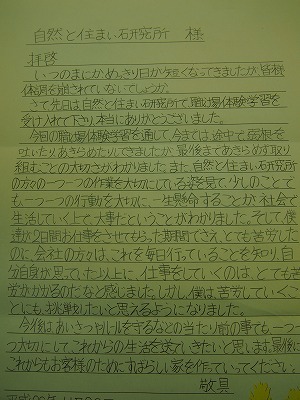 自然と住まい研究所　様
拝啓
いつのまにかめっきり日が短くなってきましたが、皆様
体調を崩されていないでしょうか。
さて先日は自然と住まい研究所で、職場体験学習を
受け入れて下さり、本当にありがとうございました。
今回の職場体験学習を通して、今までは、途中で弱音を
吐いたり、あきらめたりしてきましたが、最後まであきらめず取り
組むことの大切さがわかりました。また、自然と住まい研究所
の方々の一つ一つの作業を大切にしている姿を見て、少しのことで
も一つ一つの行動を大切に、一生懸命することが、社会で
生活していく上で大事だということがわかりました。そして、僕
達が2日間お仕事をさせてもらった期間でさえ、とても苦労した
のに、会社の方々は、これを毎日行っていることを知り、自
分自身が思っていた以上に、仕事をしていくのは、とても苦
労がかかるのだなと感じました。しかし、僕は、苦労していくこ
とにも、挑戦したいと思えるようになりました。
今後は、あいさつやルールを守るなどの当たり前の事も、一つ一
つ大切にして、これからの生活を送っていきたいと思います。最後に
これからもお客様のためにすばらしい家を作っていってください。
敬具